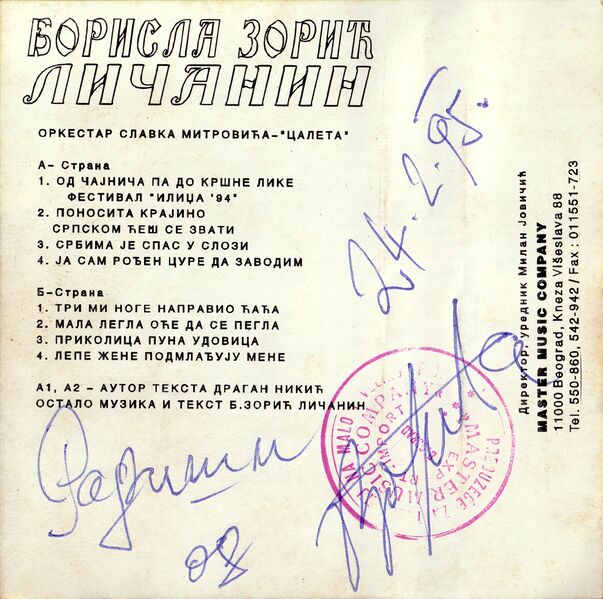 БОРИСЛА ЗОРИЋ
ЛИЧАНИН
ОРКЕСТАР СЛАВКА МИТРОВИЋА-"ЦАЛЕТА"
А- Страна
1. ОД ЧАЈНИЧА ПА ДО КРШНЕ ЛИКЕ
ФЕСТИВАЛ "ИЛИЏА '94"
2. ПОНОСИТА КРАЈИНО
СРПСКОМ ЋЕШ СЕ ЗВАТИ
3. СРБИМА ЈЕ СПАС У СЛОЗИ
4. ЈА САМ РОЂЕН ЦУРЕ ДА ЗАВОДИМ
Б-Страна
1. ТРИ МИ НОГЕ НАПРАВИО ЋАЋА
2. МАЛА ЛЕГЛА ОЋЕ ДА СЕ ПЕГЛА
3. ПРИКОЛИЦА ПУНА УДОВИЦА
4. ЛЕПЕ ЖЕНЕ ПОДМЛАЂУЈУ МЕНЕ
А1, А2 – АУТОР ТЕКСТА ДРАГАН НИКИЋ
ОСТАЛО МУЗИКА И ТЕКСТ Б.ЗОРИЋ ЛИЧАНИН
24.2.95.
Директор, уредник Милан Јовичић
MASTER MUSIC COMPANY
11000 Beograd, Kneza Višeslava 88
Tel. 550-860, 542-942 / Fax : 011551-723
NA MALO
MASTER
MUSIC COMPANY
IMPORT
од